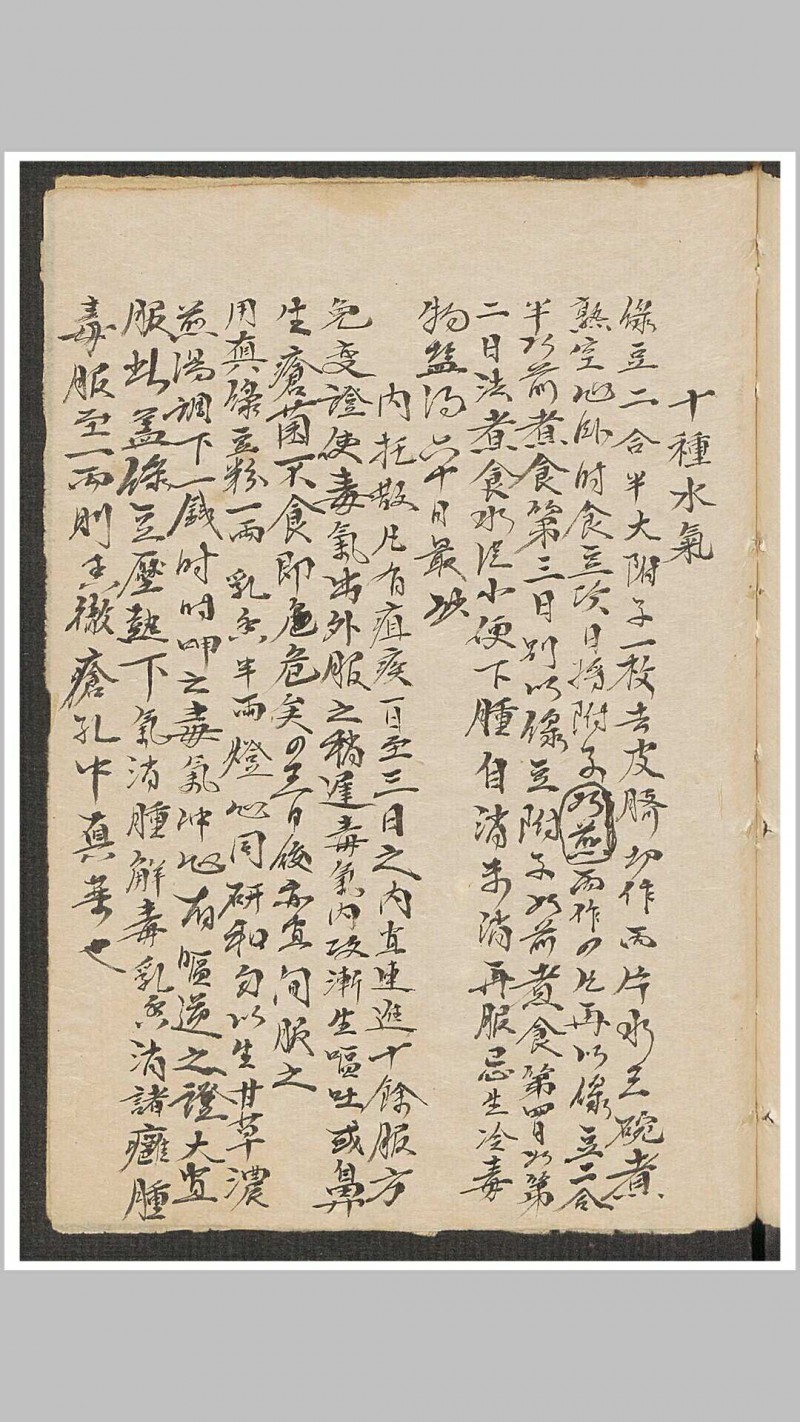 十種水氣
綠豆二合半大附子一枚去皮臍切作兩片水三碗煮
熟空心卧时食豆次日將附子如前兩作四片再以綠豆二合
半如前煮食第三日别以綠豆附子如前煮食第四日如第
二日法煮食水從小便下腫自消未消再服忌生冷毒
物盐酒六十日最效
内托散凡有疽疾一日至三日之内宜連進十餘服方
免变證使毒氣出外服之稍遲毒氣内攻漸生嘔吐或鼻
生瘡菌不食即危矣四五日後亦宜间服之
用真綠豆粉一兩乳香半兩燈心同研和匀以生甘草濃
煎湯調下一錢时时呷之毒氣冲心有嘔逆之證大宜
服此盖綠豆壓熱下氣消腫解毒乳香消諸癰腫
毒服至一兩則香徹瘡孔中真圣也